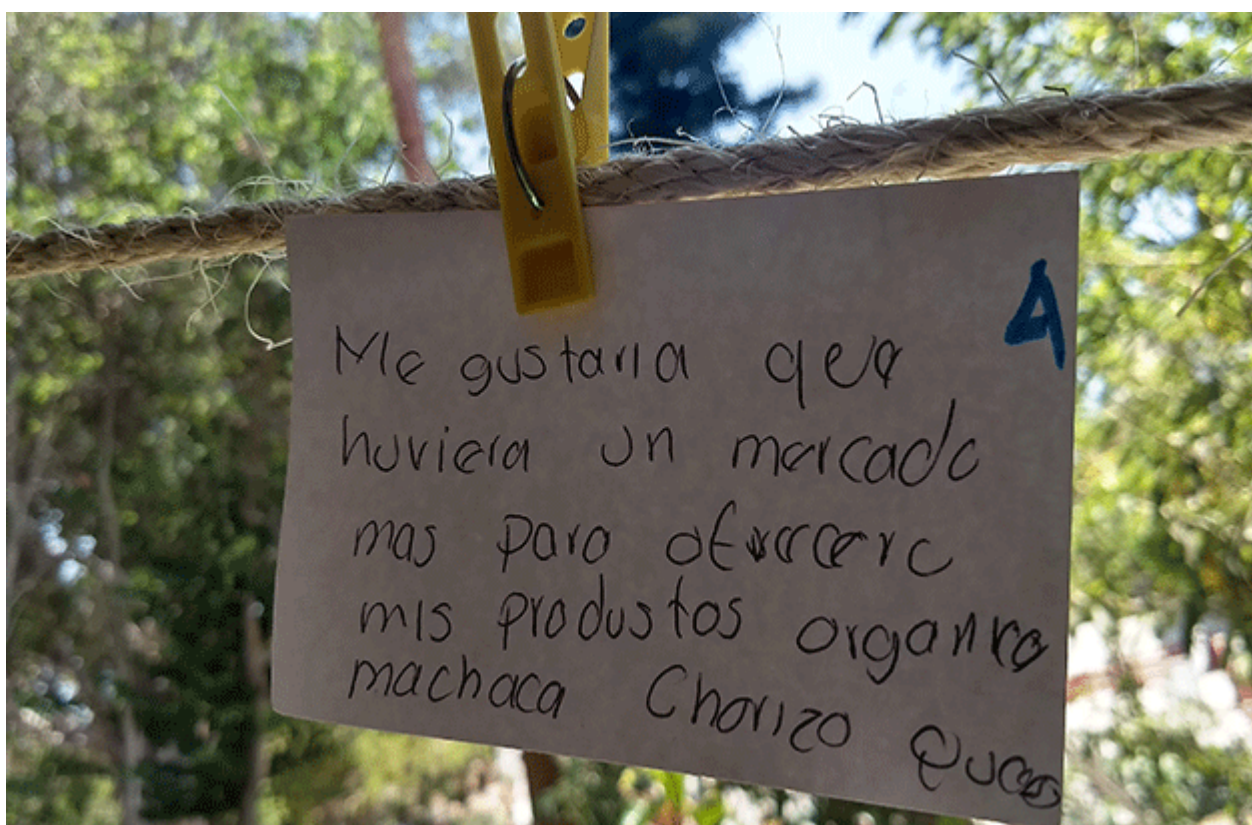 4
Me gustaria que
huviera un mercado
mas para
mis produstos organico
machaca Chorizo